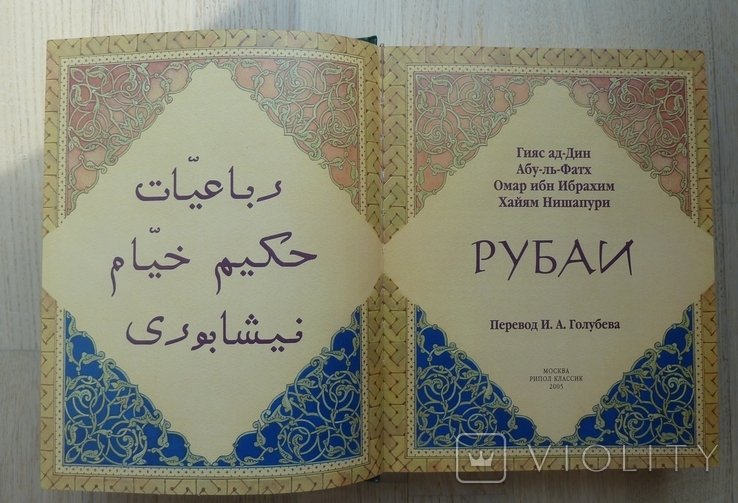 رباعیّات
حکیم خیّام
نیشابوری
Гияс ад-Дин
Абу-ль-Фатх
Омар ибн Ибрахим
Хайям Нишапури
РУБАИ
Перевод И. А. Голубева
МОСКВА
РИПОЛ КЛАССИК
2005
VIOLITY